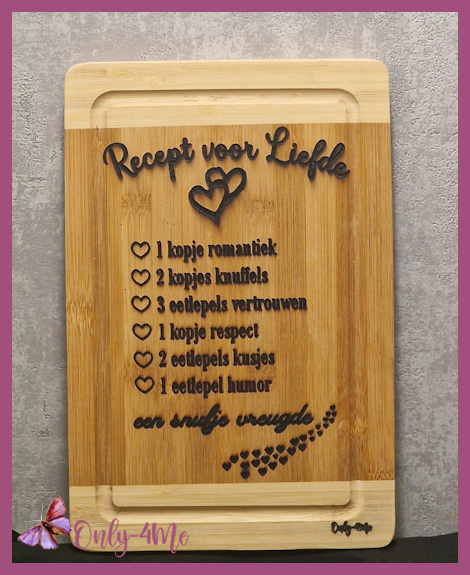 Recept voor Liefde
1 kopje romantiek
2 kopjes knuffels
3 eetlepels vertrouwen
1 kopje respect
2 eetlepels kusjes
1 eetlepel humor
een snufje vreugde
Only-4Me
Only-4Me